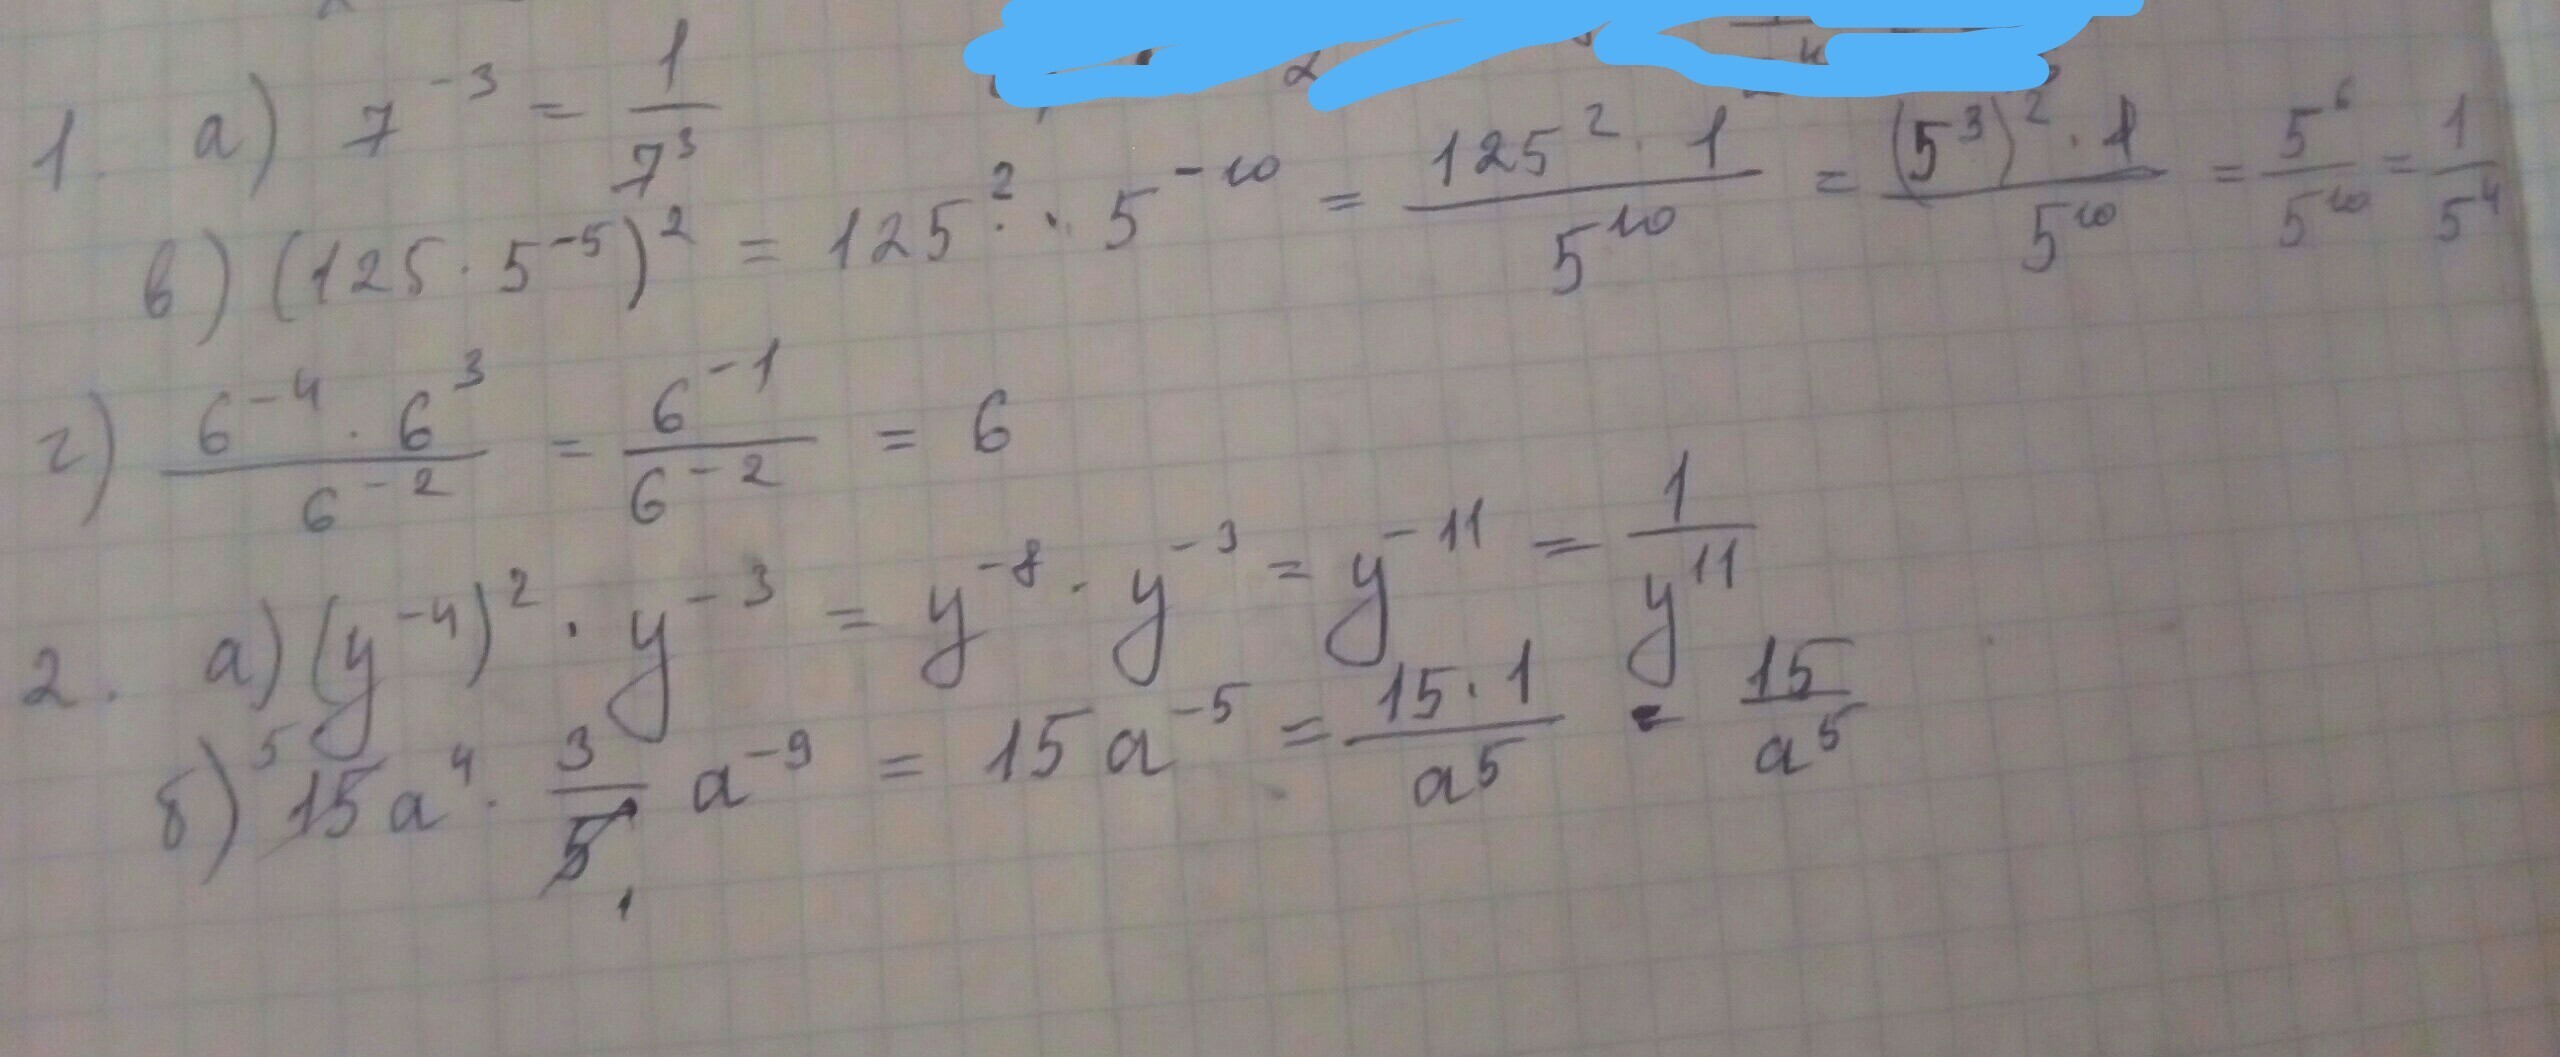 1. а) 7^-3 = 1/7^3
в) (125 · 5^-5)^2 = 125^2 · 5^-10 = (125^2 · 1)/5^10 = ((5^3)^2 · 1)/5^10 = 5^6/5^10 = 1/5^4
г) (6^-4 · 6^3)/6^-2 = 6^-1/6^-2 = 6
2. а) (y^-4)^2 · y^-3 = y^-8 · y^-3 = y^-11 = 1/y^11
б) 5 15a^4 · 3/5 1 a^-9 = 15a^-5 = (15 · 1)/a^5 = 15/a^5